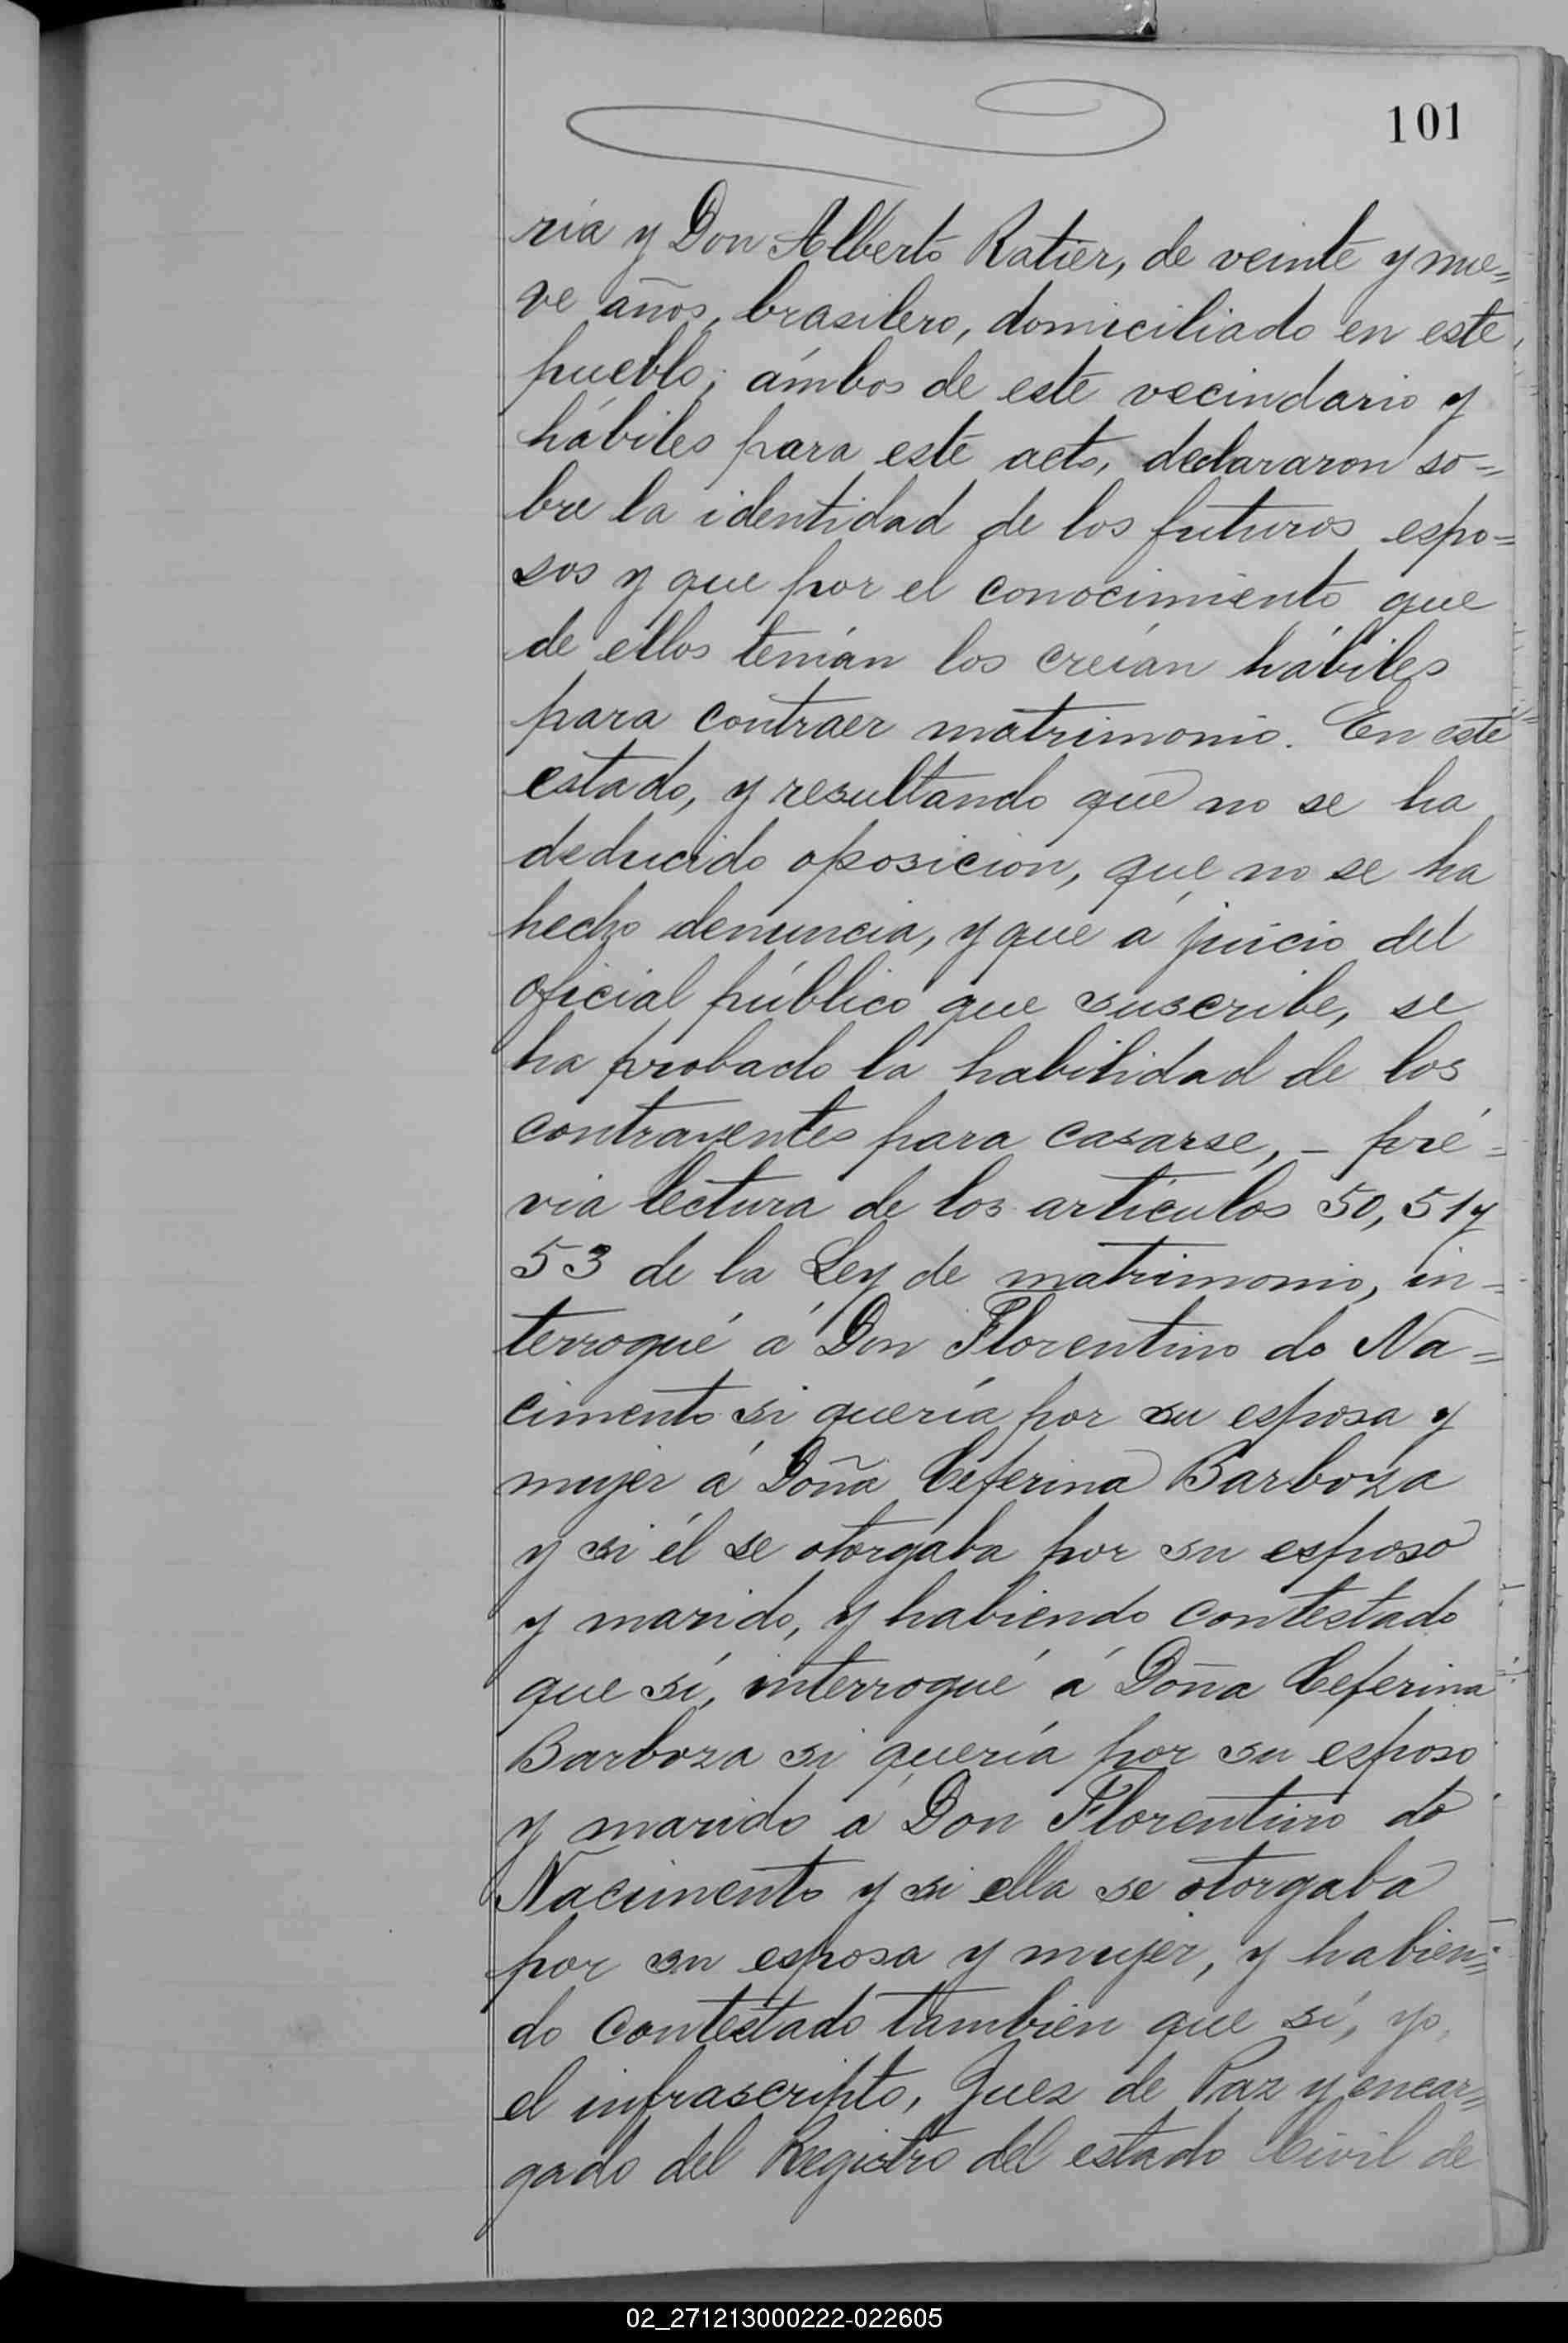 101
ria y Don Alberto Ratier, de veinte y nue=
ve años, brasilero, domiciliado en este
pueblo; ámbos de este vecindario y
hábiles para este acto, declararon so=
bre la identidad de los futuros espo=
sos y que por el conocimiento que
de ellos tenían los creían hábiles
para contraer matrimonio. En este
estado, y resultando que no se ha
deducido oposicion, que no se ha
hecho denuncia, y que á juicio del
oficial público que suscribe, se
ha probado la habilidad de los
contrayentes para casarse, - pré=
via lectura de los artículos 50, 51 y
53 de la Ley de matrimonio, in-
terrogué á Don Florentino do Na=
cimento si quería por su esposa y
mujer á Doña Ceferina Barboza
y si él se otorgaba por su esposo
y marido, y habiendo contestado
que sí, interrogué á Doña Ceferina
Barboza si quería por su esposo
y marido a Don Florentino do
Nacimento y si ella se otorgaba
por su esposa y mujer, y habien=
do contestado tambien que sí, yo,
el infrascripto, Juez de Paz y encar=
gado del Registro del estado Civil de
02_271213000222-022605